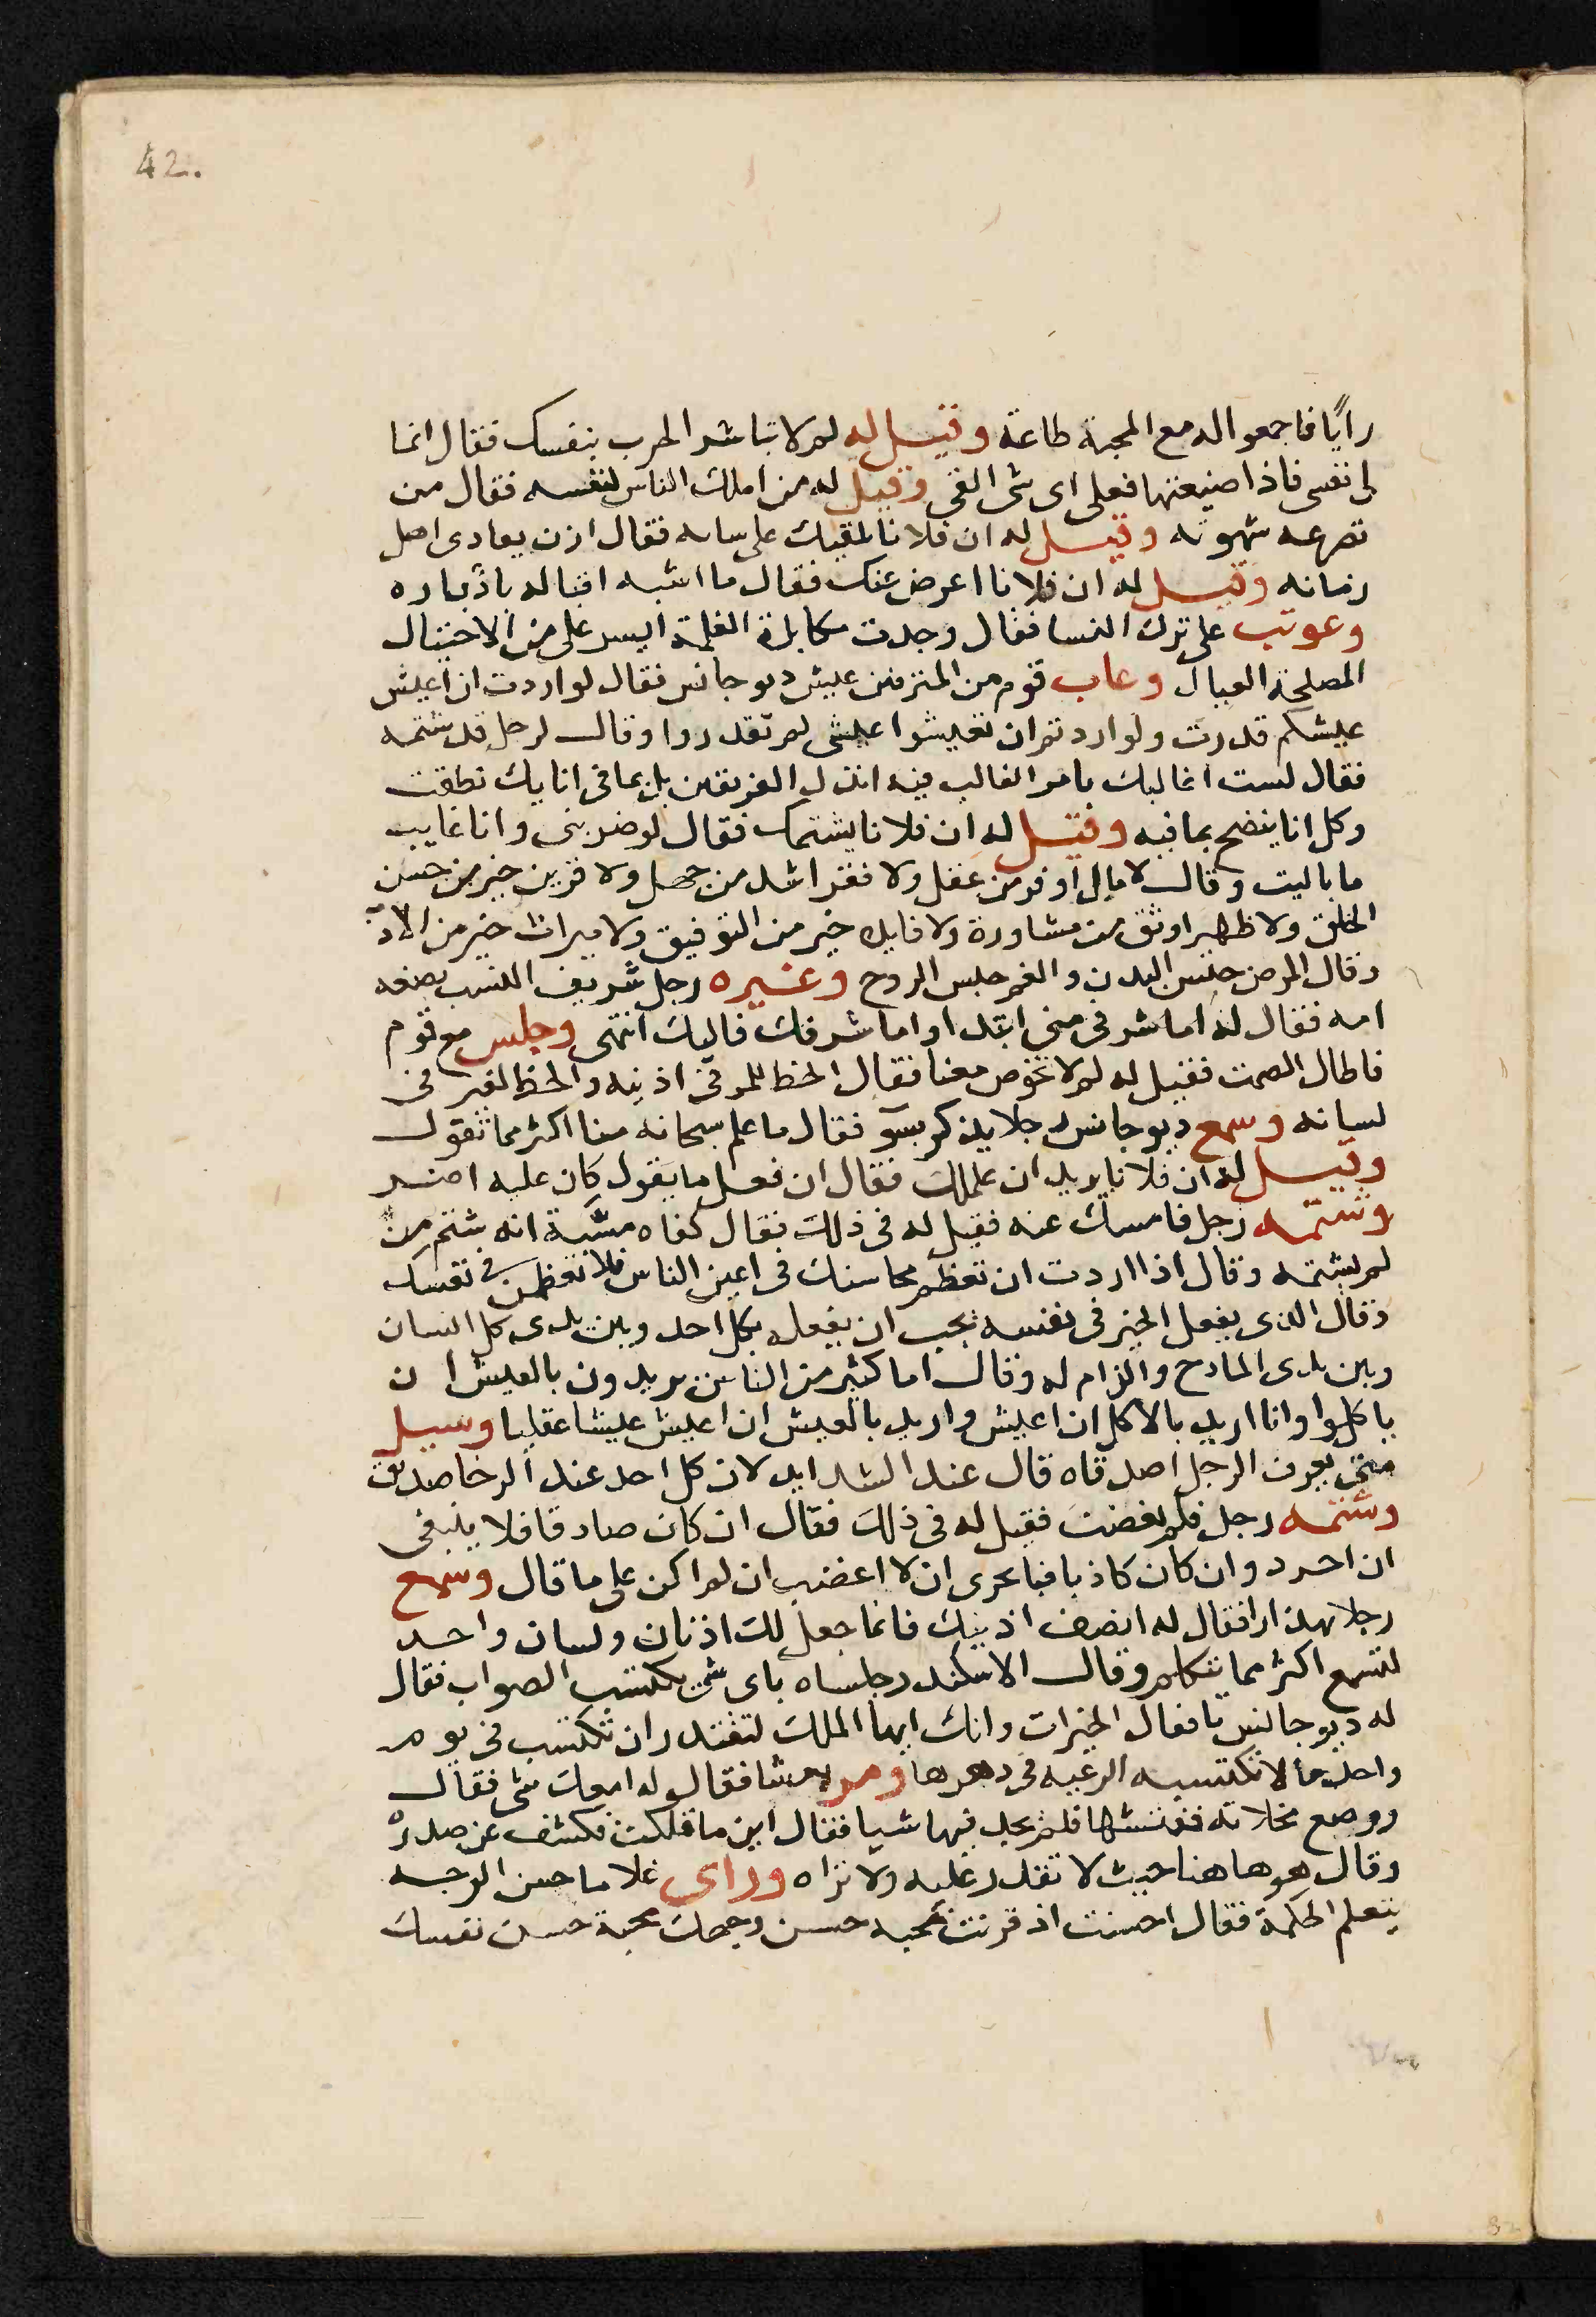 42.
رايًا فاجمعوا له مع المحبة طاعة وقيل له لم لا تباشر الحرب بنفسك فقال انما
لى نفس فاذا ضيعتها فعلى اى شى القى وقيل له من املك الناس لنفسه فقال من
تصرعه شهوته وقيل له ان فلانا لقبك على فقال اذن يعادى اهل
زمانه وقيل له ان فلانا اعرض عنك فقال ما اشبه اقباله بادباره
وعوتب على ترك النسا فقال وجدت مكابدة الغلمة ايسر على من الاحتيال
المصلحة العيال وعاب قوم من المترفين عيش ديوجانس فقال لو اردت ان اعيش
عيشكم قدرت ولو اردتم ان تعيشوا عيشى لم تقدروا وقال لرجل قد شتمه
فقال لست اغالبك بامر الغالب فيه انذل الفريقين بل بما فى انايك نطقت
وكل انا ينضح بما فيه وقيل له ان فلانا يشتمك فقال لو ضربنى وانا غايب
ما باليت وقال لا مال اوفر من عقل ولا فقر اشد من جهل ولا قرين خير من حسن
الخلق ولا ظهير اوثق من مشاورة ولا قايد خير من التوفيق ولا ميراث خير من الادب
وقال المرض حبس البدن والغم حبس الروح وعيره رجل شريف النسب بضعه
امه فقال له اما شرفى منى ابتدا واما شرفك فاليك انتهى وجلس مع قوم
فاطال الصمت فقيل له لم لا تخوض معنا فقال الحظ للمر فى اذنيه والحظ لغيره فى
لسانه وسمع ديوجانس رجلا يذكر بسو فقال ما علم سبحانه منا اكثر مما تقول
وقيل له ان فلانا يريد ان علملك فقال ان فعل ما يقول كان عليه اضر
وشتمه رجل فامسك عنه فقيل له فى ذلك فقال كفاه مسبة انه شتم من
لم يشتمه وقال اذا اردت ان تعظم محاسنك فى اعين الناس فلا تعظمن فى نفسك
وقال الذى يفعل الخير فى نفسه يجب ان يفعله بكل احد وبين يدى كل انسان
وبين يدى المادح والذام له وقال اما كثير من الناس يريدون بالعيش ان
ياكلوا وانا اريد بالاكل ان اعيش واريد بالعيش ان اعيش عيشا عقليا وسيل
متى يعرف الرجل اصدقاه قال عند الشدايد لان كل احد عند الرخا صديق
وشتمه رجل فلم يغضب فقيل له فى ذلك فقال ان كان صادقا فلا ينبغى
ان احرد وان كان كاذبا فباحرى ان لا اغضب ان لم اكن على ما قال وسمع
رجلا مهذارا فقال له انصف اذنيك فانما جعل لك اذنان ولسان واحد
لتسمع اكثر مما تتكلم وقال الاسكندر جلساه باى شى يكتسب الصواب فقال
له ديوجانس بافعال الخيرات وانك ايها الملك لتقتدر ان تكتسب فى يوم
واحد ما لا تكتسبه الرعيه فى دهرها ومر فقالوا له امعك شى فقال
ووضع مخلاته ففتشها فلم يجد فيها شيا فقال اين ما قلت فكشف عن صدره
وقال هو هاهنا حيث لا تقدر عليه ولا تراه وراى غلاما حسن الوجه
يتعلم الحكمة فقال احسنت اذ قرنت بمحبة حسن وجهك محبة حسن نفسك